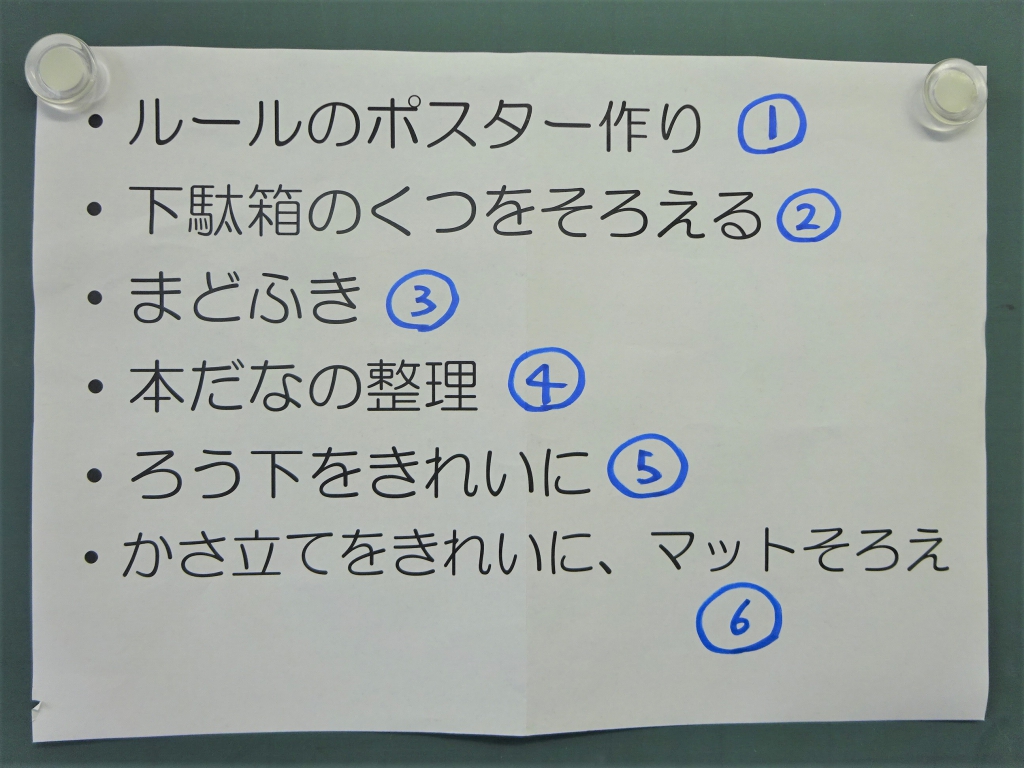 ・ルールのポスター作り ①
・下駄箱のくつをそろえる ②
・まどふき ③
・本だなの整理 ④
・ろう下をきれいに ⑤
・かさ立てをきれいに、マットそろえ
⑥